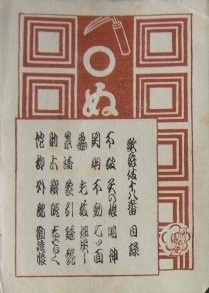 ぬ
歌舞伎十八番 目録
不破 矢の根 鳴神
関羽 不動 七ツ面
毛抜 押戻し
景清 象引 鎌髭
助六 解脱
蛇柳 外郎 勧進帳